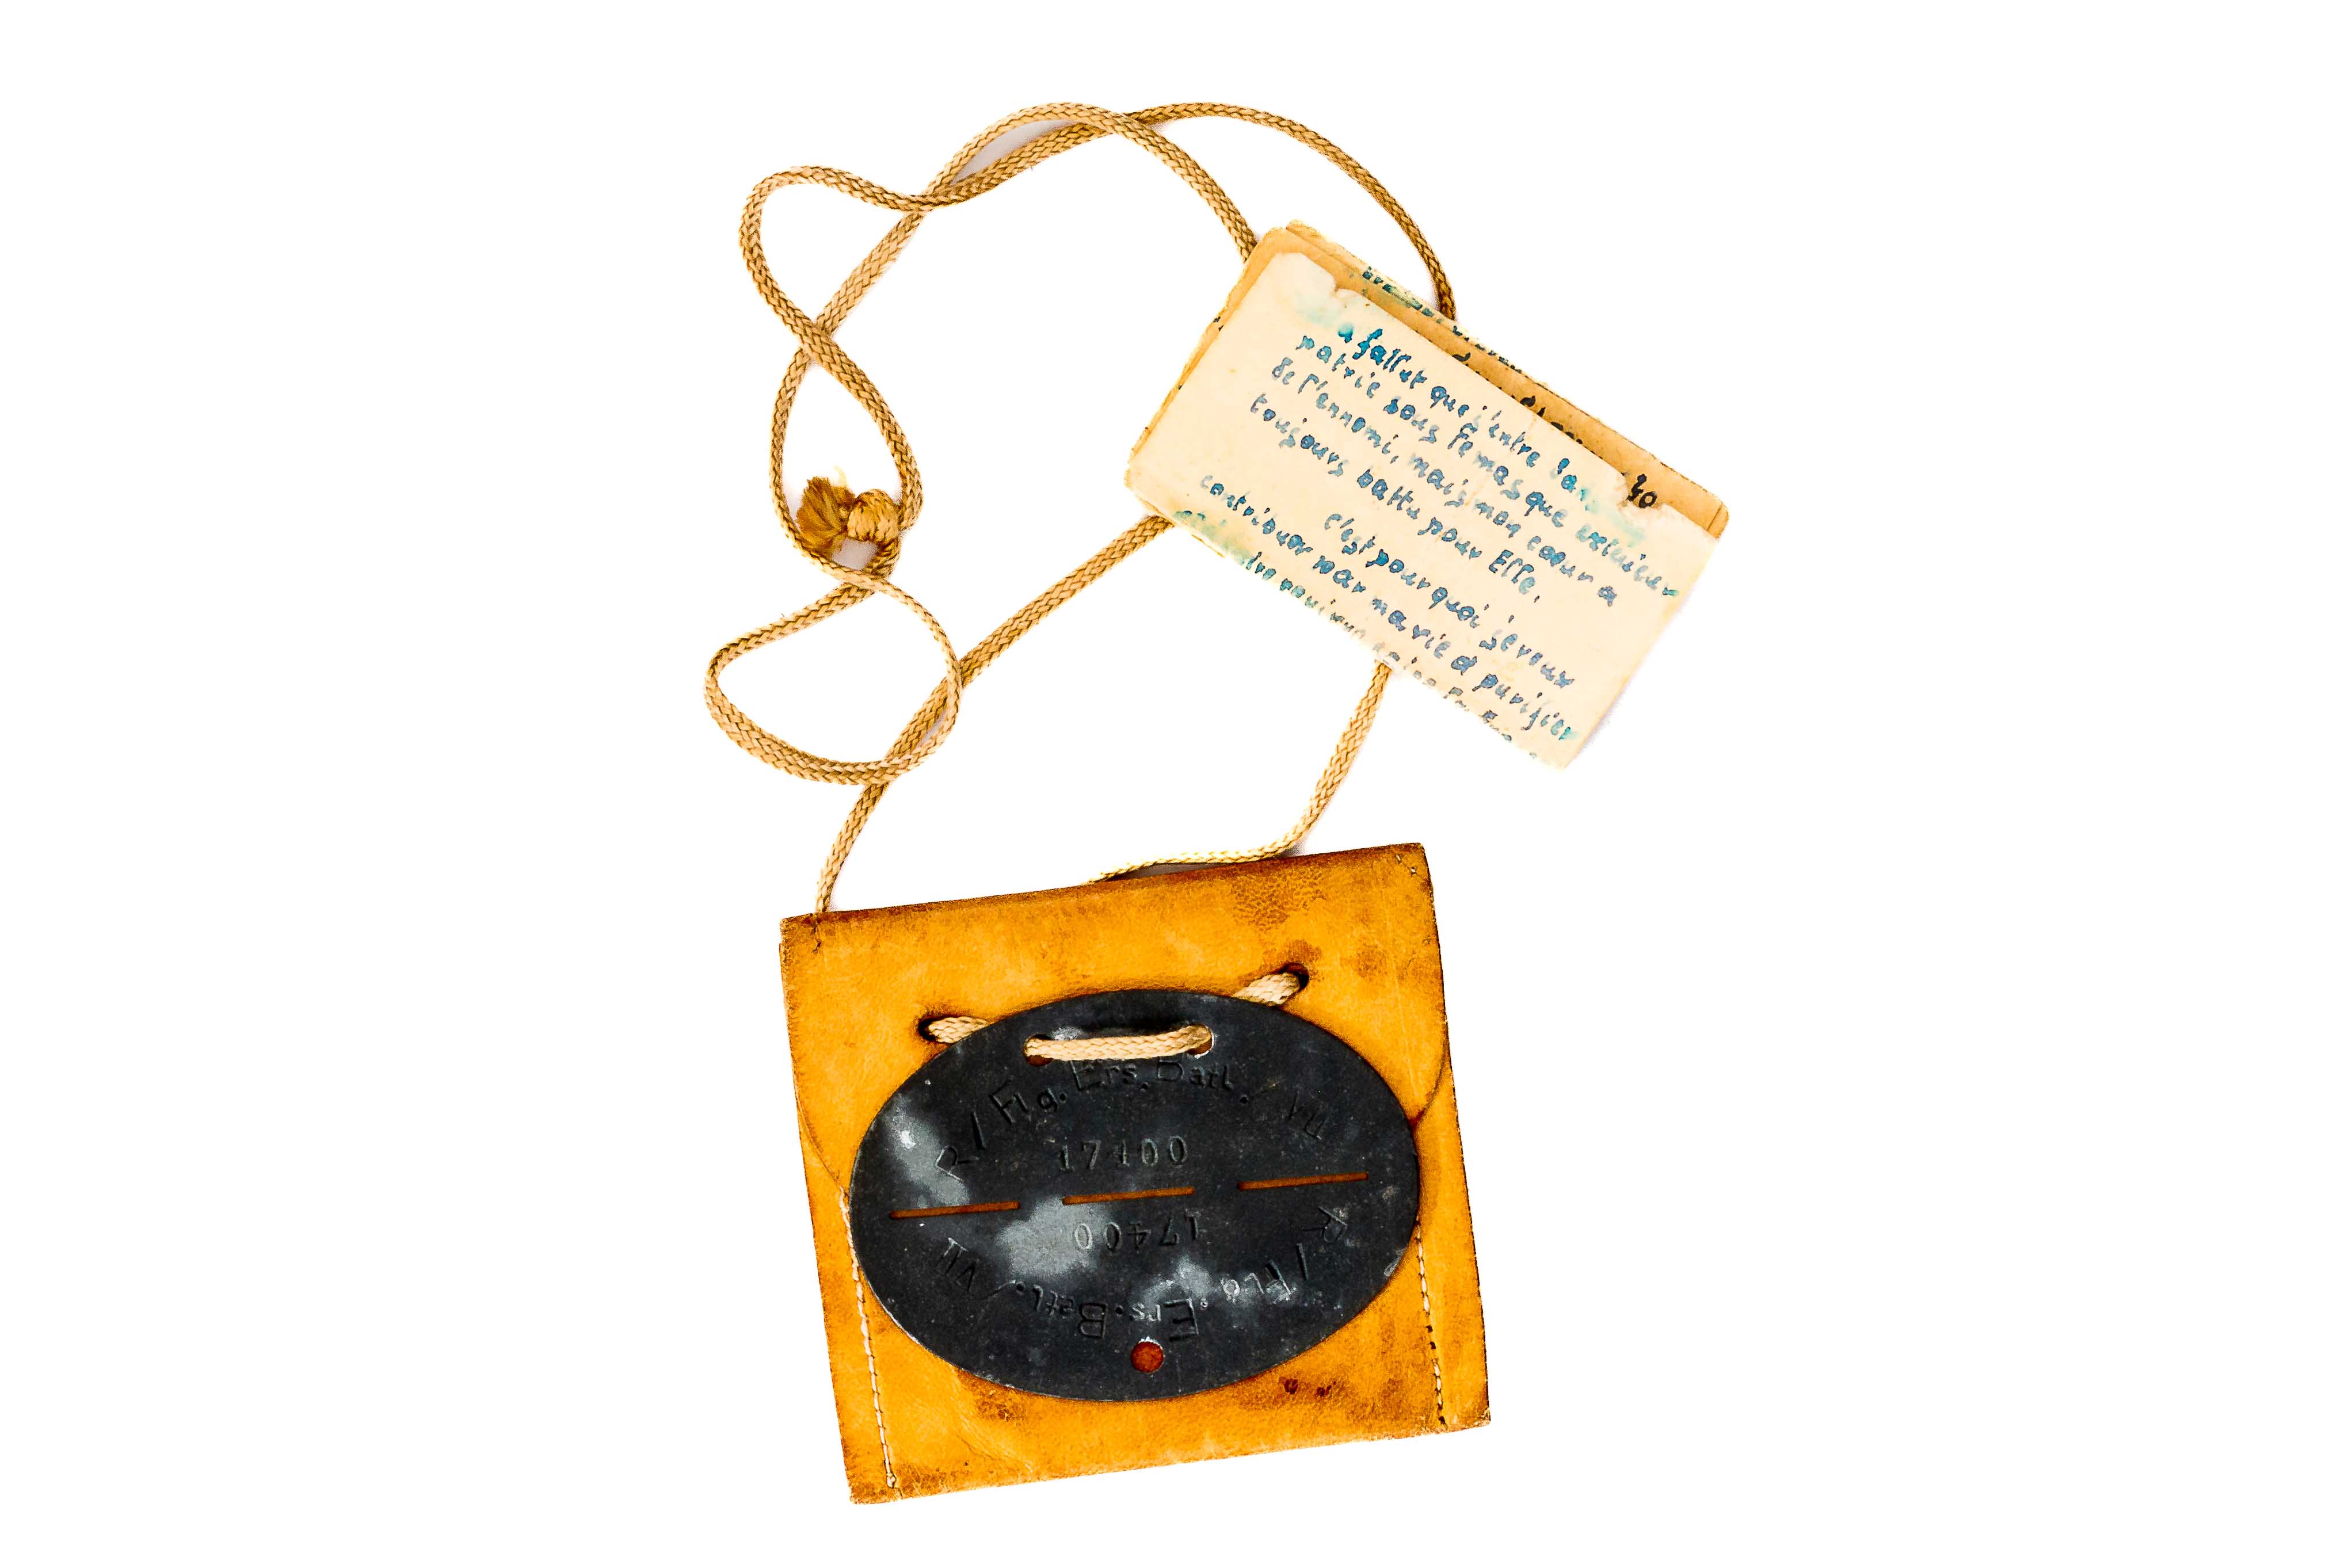 a fallut que j'entre dans
patrie sous le masque extérieur
de l'ennomi, mais mon coeur a
toujours battu pour Elle.
c'est pourquoi je veux
contribuer par ma vie à purifier
40
R/Flg.Ers.Batl./VII
17400
17400
R/Flg.Ers.Batl./VII